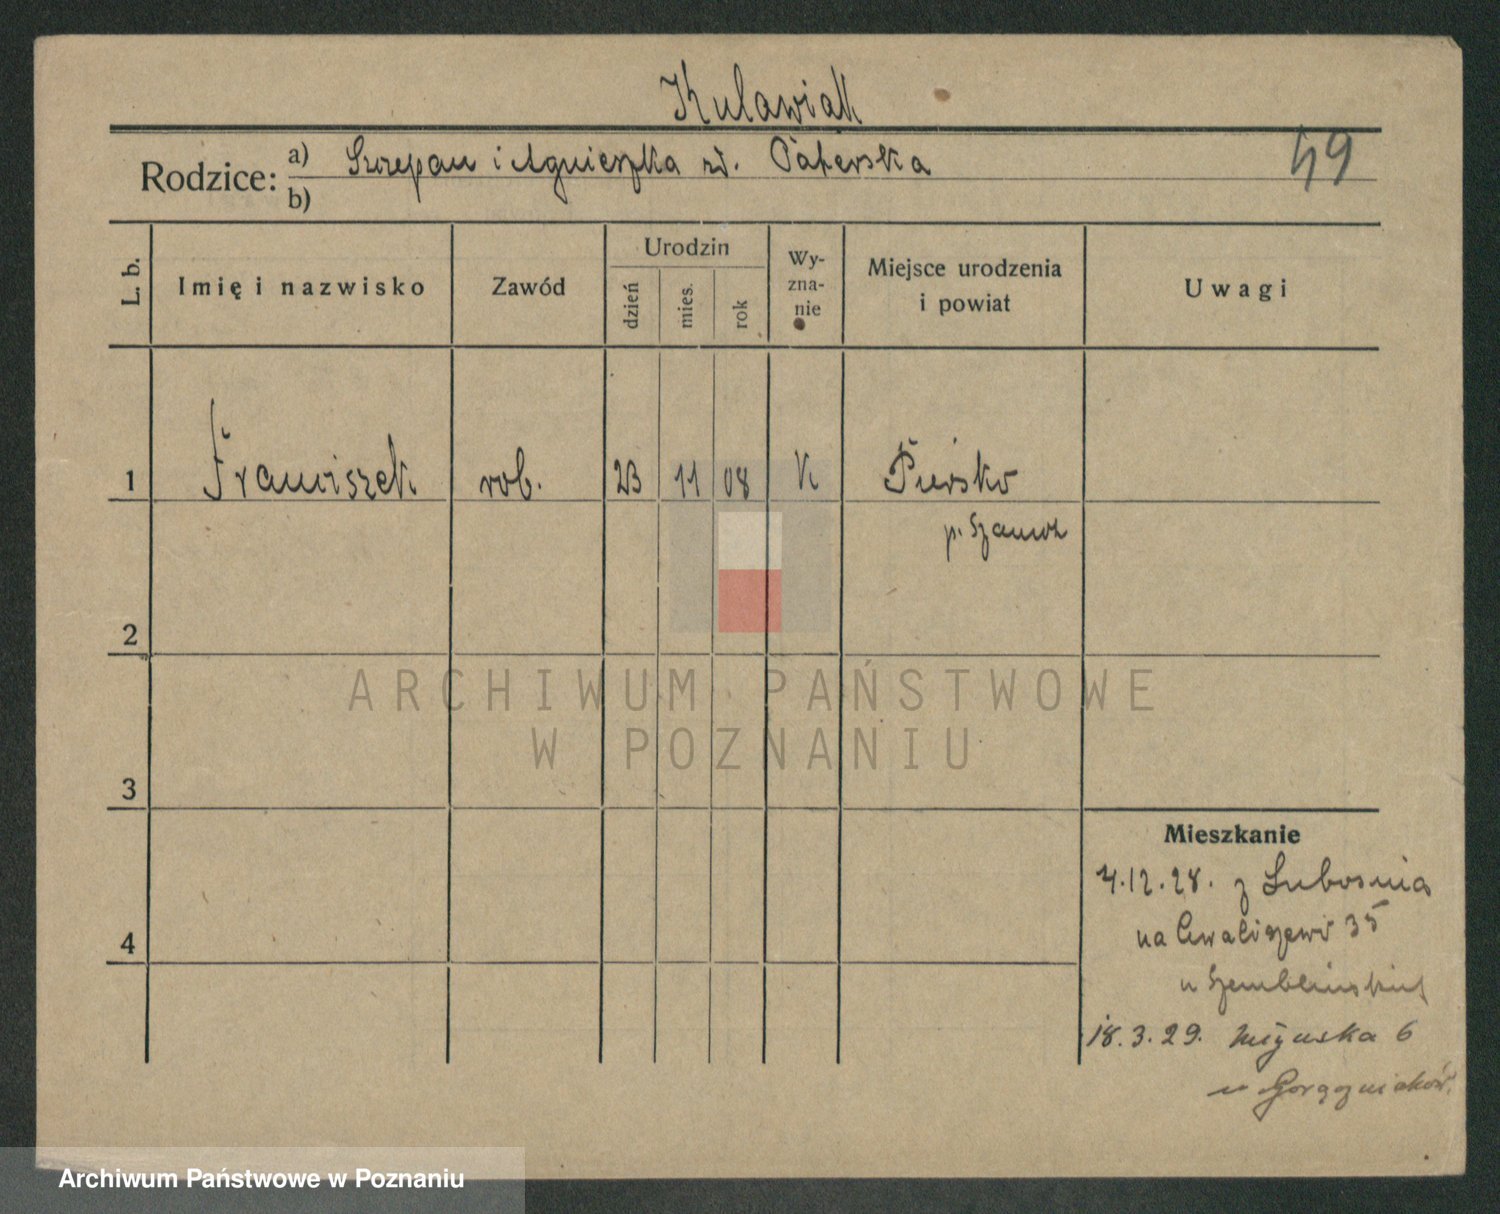 Kulawiak
Rodzice: a) Szczepan i Agnieszka zd. Paterska
49
b)
L. b.
Imię i nazwisko
Zawód
Urodzin
dzień
mies.
rok
Wy-
zna-
nie
Miejsce urodzenia
i powiat
Uwagi
1 Franciszek rob. 23 11 08 K Piersko
p. Szamot
2
3
4
ARCHIWUM PAŃSTWOWE
W POZNANIU
Mieszkanie
4.12.28. z Lubosnia
na Chwaliszewo 35
u
18.3.29. 6
u
Archiwum Państwowe w Poznaniu